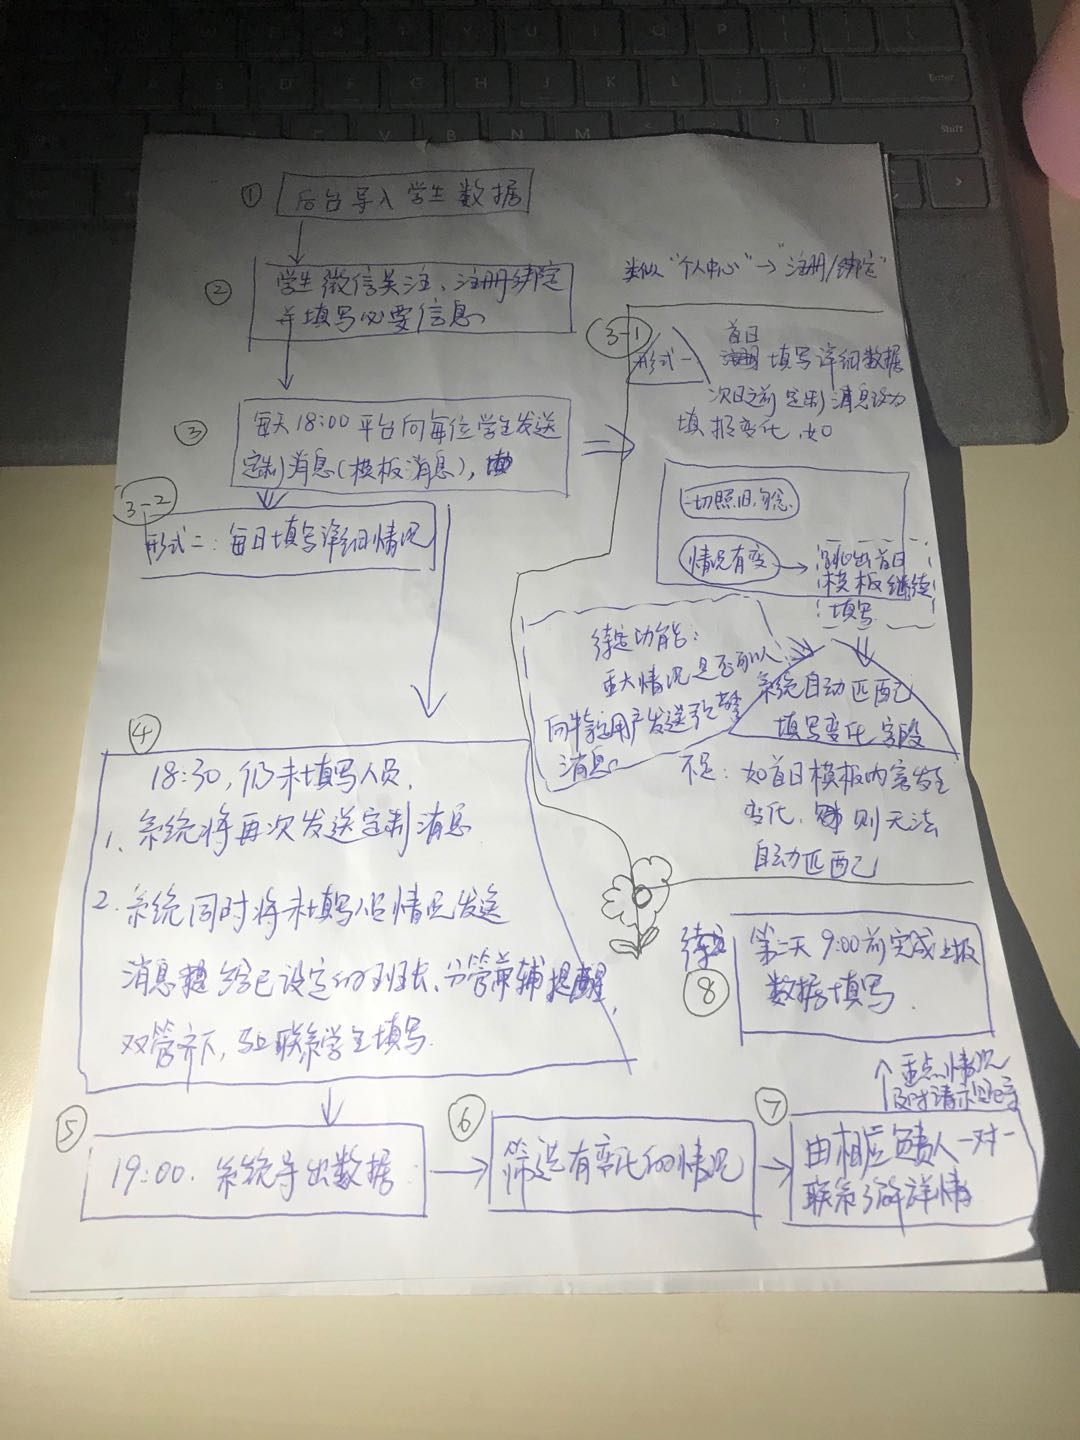 ① 后台导入学生数据
② 学生微信关注、注册绑定
并填写必要信息
类似“个人中心”→“注册/绑定”
③ 每天18:00平台向每位学生发送
定制消息(模板消息),
3-1
形式一
首日
填写详细数据
次日之前定制消息设为
填报变化,如
一切照旧,勿念
情况有变→
跳出首日
模板继续
填写
3-2
形式二:每日填写详细情况
待定功能:
重大情况是否可以
向特定用户发送预警
消息。
系统自动匹配
填写变化字段
不足:如首日模板内容发生
变化,则无法
自动匹配
④
18:30,仍未填写人员,
1、系统将再次发送定制消息
2.系统同时将未填写人员情况发送
消息给已设定的班长、分管兼辅提醒,
双管齐下,联系学生填写.
⑤ 19:00.系统导出数据
→
⑥ 筛选有变化的情况
→
⑦ 由相应负责人一对一
联系了解详情
重点情况
及时请示
待定
⑧ 第二天9:00前完成上报
数据填写.
Enter
Shift